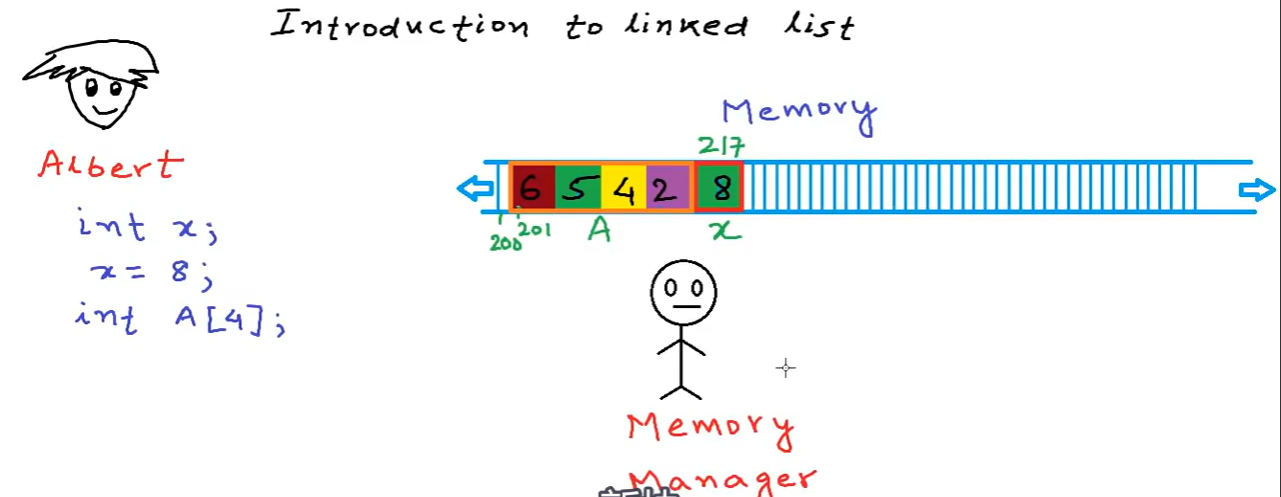 Introduction to linked list
Albert
int x;
x = 8;
int A[4];
Memory
217
6 5 4 2 8
200 201 A x
Memory
Manager